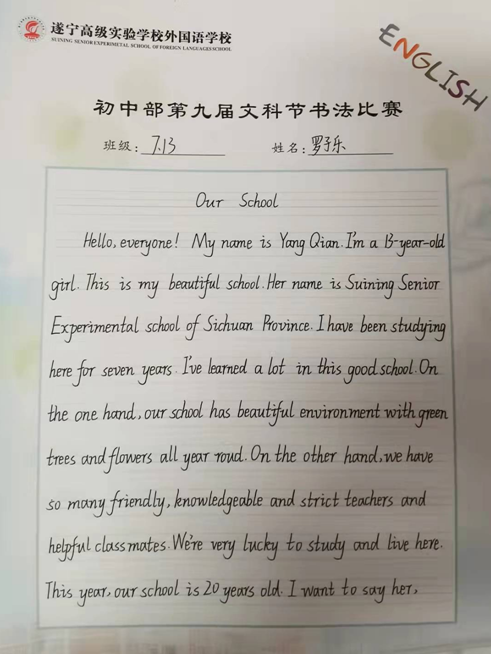 遂宁高级实验学校外国语学校
SUINING SENIOR EXPERIMETAL SCHOOL OF FOREIGN LANGUAGES SCHOOL
ENGLISH
初中部第九届文科节书法比赛
班级: 7.13 姓名: 罗子乐
Our School
Hello, everyone! My name is Yang Qian. I'm a 13-year-old
girl. This is my beautiful school. Her name is Suining Senior
Experimental school of Sichuan Province. I have been studying
here for seven years. I've learned a lot in this good school. On
the one hand, our school has beautiful environment with green
trees and flowers all year roud. On the other hand, we have
so many friendly, knowledgeable and strict teachers and
helpful classmates. We're very lucky to study and live here.
This year, our school is 20 years old. I want to say her,